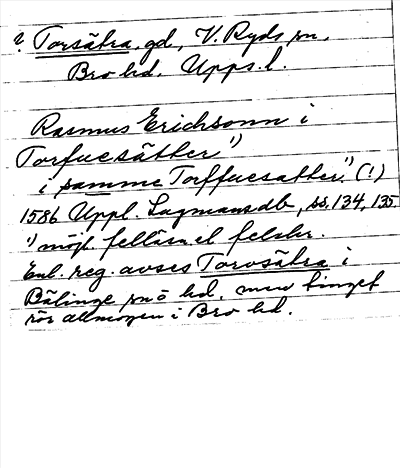 ? Torsätra, gd, V. Ryds sn,
Bro hd. Upps. l.
Rasmus Erichsonn i
Torfuesätker¹⁾
i samme Torffuesatker¹⁾. (!)
1586 Uppl. Lagmansdb, ss. 134, 135.
¹⁾ möjl. felläsn. el. felskr.
Enl. reg. avses Torvsätra i
Bälinge sn o hd. men tinget
rör allmogen i Bro hd.